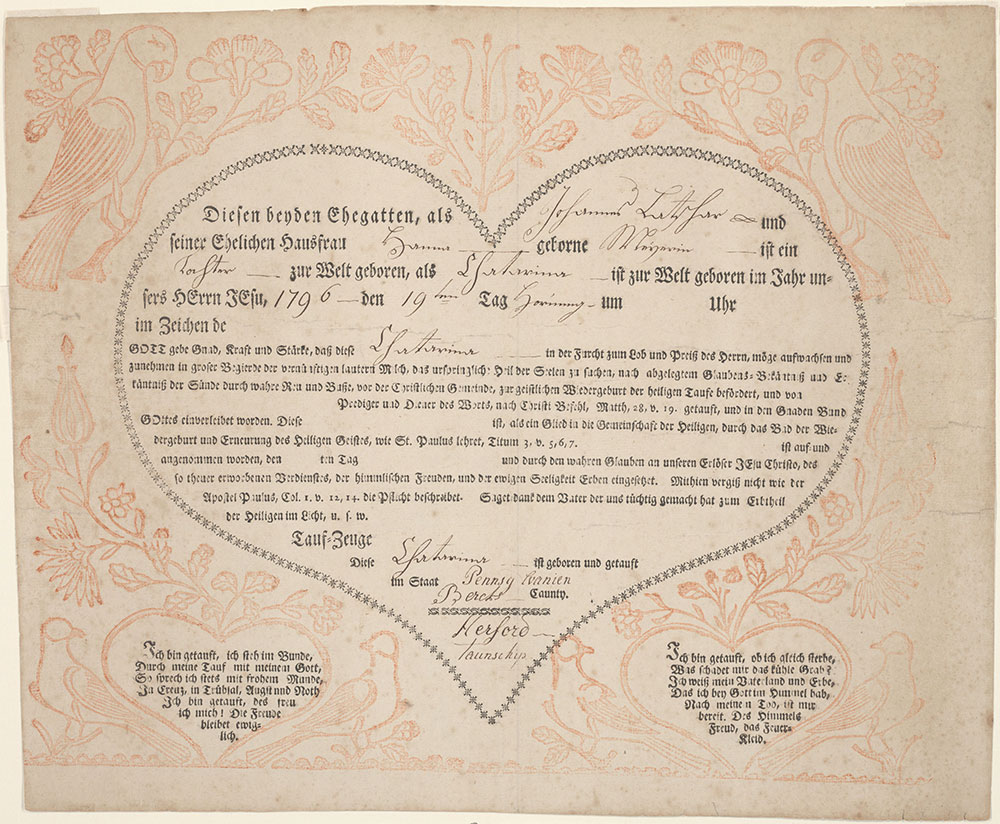 Diesen beyden Ehegatten, als Johannes Latschar und
seiner Ehelichen Hausfrau Hanna geborne Meyerin ist ein
tochter zur Welt geboren, als Chatarina ist zur Welt geboren im Jahr un-
sers HErrn JEsu, 1796 den 19ten Tag Hornung um Uhr
im Zeichen de
GOTT gebe Gnad, Kraft und Stärke, daß diese Chatarina in der Furcht zum Lob und Preiß des Herrn, möge aufwachsen und
zunehmen in groser Begierde der vernünftigen lautern Milch, das ursprünglich: Heil der Seelen zu suchen, nach abgelegtem Glaubens-Bekäntniß und Er-
käntniß der Sünde durch wahre Reu und Buße, vor der Christlichen Gemeinde, zur geistlichen Wiedergeburt der heiligen Taufe befördert, und von
Prediger und Diener des Worts, nach Christi Befehl, Matth, 28, v. 19. getauft, und in den Gnaden Bund
GOttes einverleibet worden. Diese ist, als ein Glied in die Gemeinschaft der Heiligen, durch das Bad der Wie-
dergeburt und Erneurung des Heiligen Geistes, wie St. Paulus lehret, Titum 3, v. 5,6,7. ist auf und
angenommen worden, den ten Tag und durch den wahren Glauben an unseren Erlöser JEsu Christo, des
so theuer erworbenen Verdiensters, der himmlischen Freuden, und der ewigen Seeligkeit Erben eingesetzt. Mithien vergiß nicht wie der
Apostel Paulus, Col. 1. v. 12, 14. die Pflicht beschreibet. Saget dank dem Vater der uns tüchtig gemacht hat zum Erbtheil
der Heiligen im Licht, u. s. w.
Tauf-Zeuge
Diese Chatarina ist geboren und getauft
im Staat Pennsylvanien
Bercks Caunty.
Herford
taunschip
Ich bin getauft, ich steh im Bunde,
Durch meine Tauf mit meinem Gott,
So sprech ich stets mit frohem Munde,
In Creuz, in Trübsal, Angst und Noth
Ich bin getauft, des freu
ich mich! Die Freude
bleibet ewig-
lich.
Ich bin getauft, ob ich gleich sterbe,
Was schadet mir das kühle Grab?
Ich weiß mein Vaterland und Erbe,
Das ich bey Gott im Himmel hab,
Nach meinem Tod, ist mir
bereit. Des Himmels
Freud, das Feuer-
Kleid.